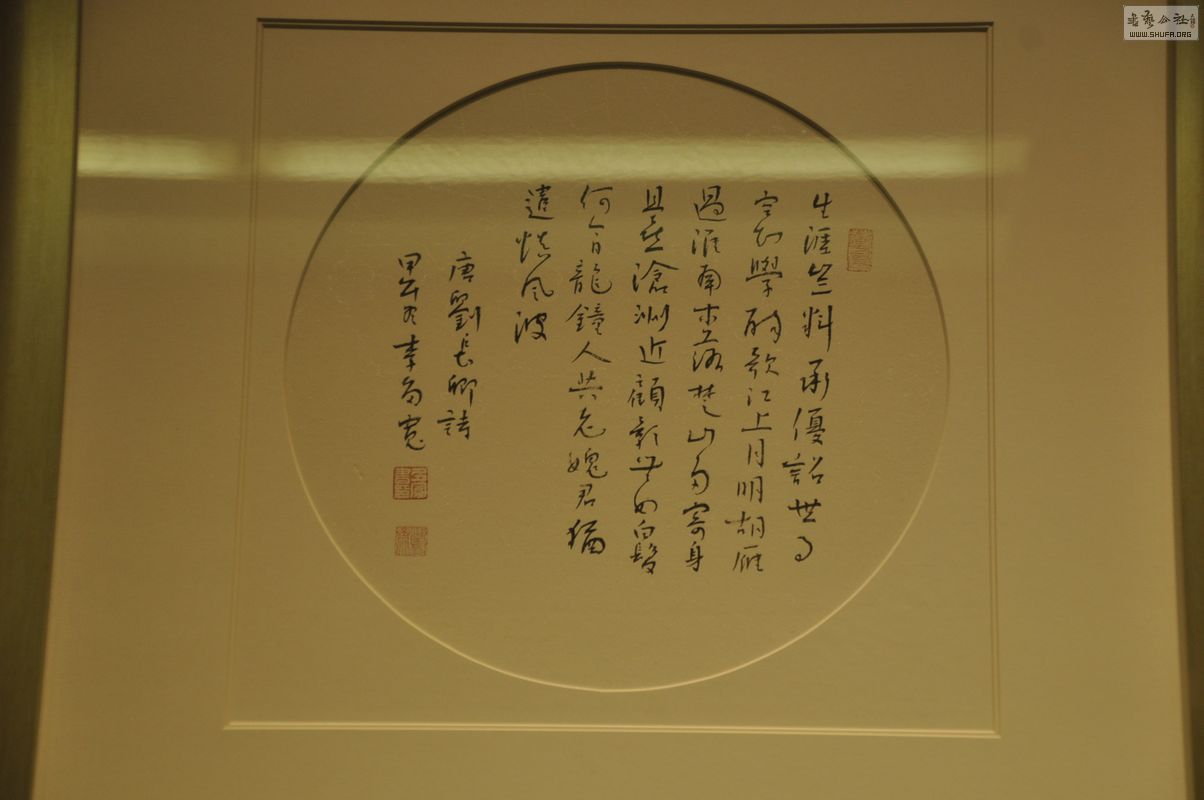 生涯豈料承優詔世事
空知學醉歌江上月明胡雁
過淮南木落楚山多寄身
且喜滄洲近顧影無如白髮
何今日龍鐘人共老媿君猶
遣慎風波
唐劉長卿詩
甲午冬李
書藝公社
WWW.SHUFA.ORG